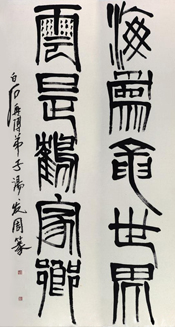 海爲龍世界
雲是鶴家鄉
白石再傳弟子湯發周篆